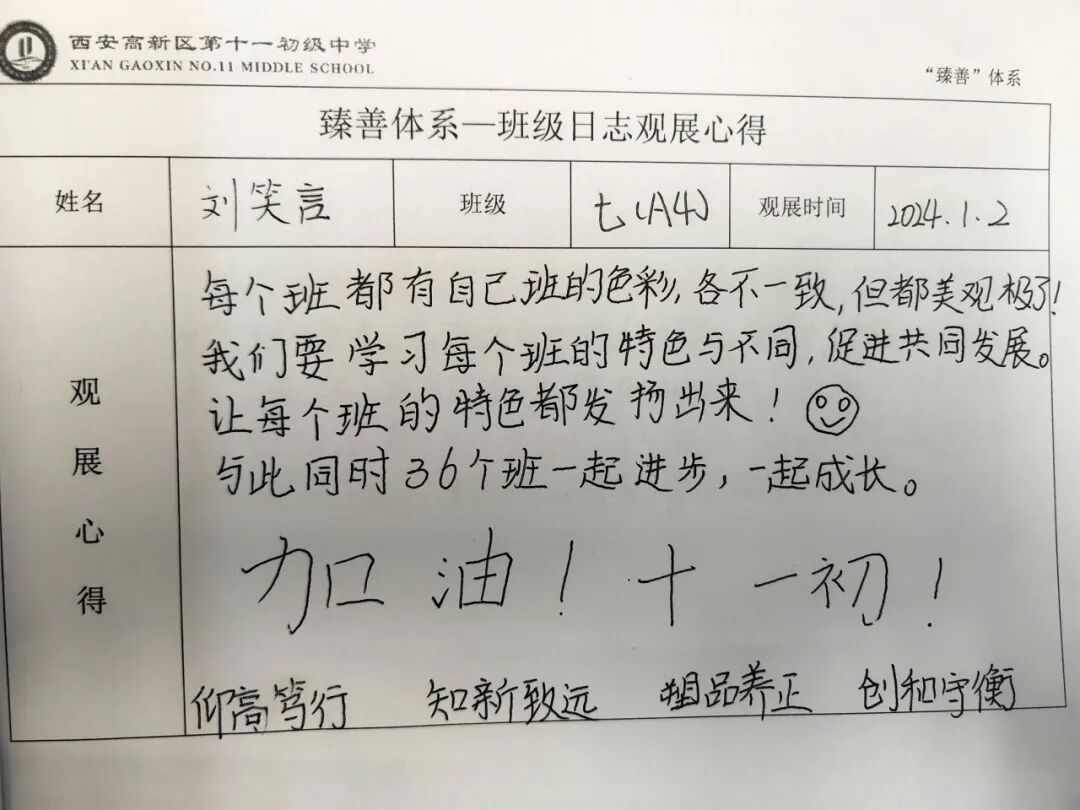 西安高新区第十一初级中学
XI'AN GAOXIN NO.11 MIDDLE SCHOOL
“臻善”体系
臻善体系—班级日志观展心得
姓名 刘笑言 班级 七(A4) 观展时间 2024.1.2
观展心得
每个班都有自己班的色彩,各不一致,但都美观极了!
我们要学习每个班的特色与不同,促进共同发展。
让每个班的特色都发扬出来!
与此同时36个班一起进步,一起成长。
加油!十一初!
仰高笃行 知新致远 品养正 创和守衡